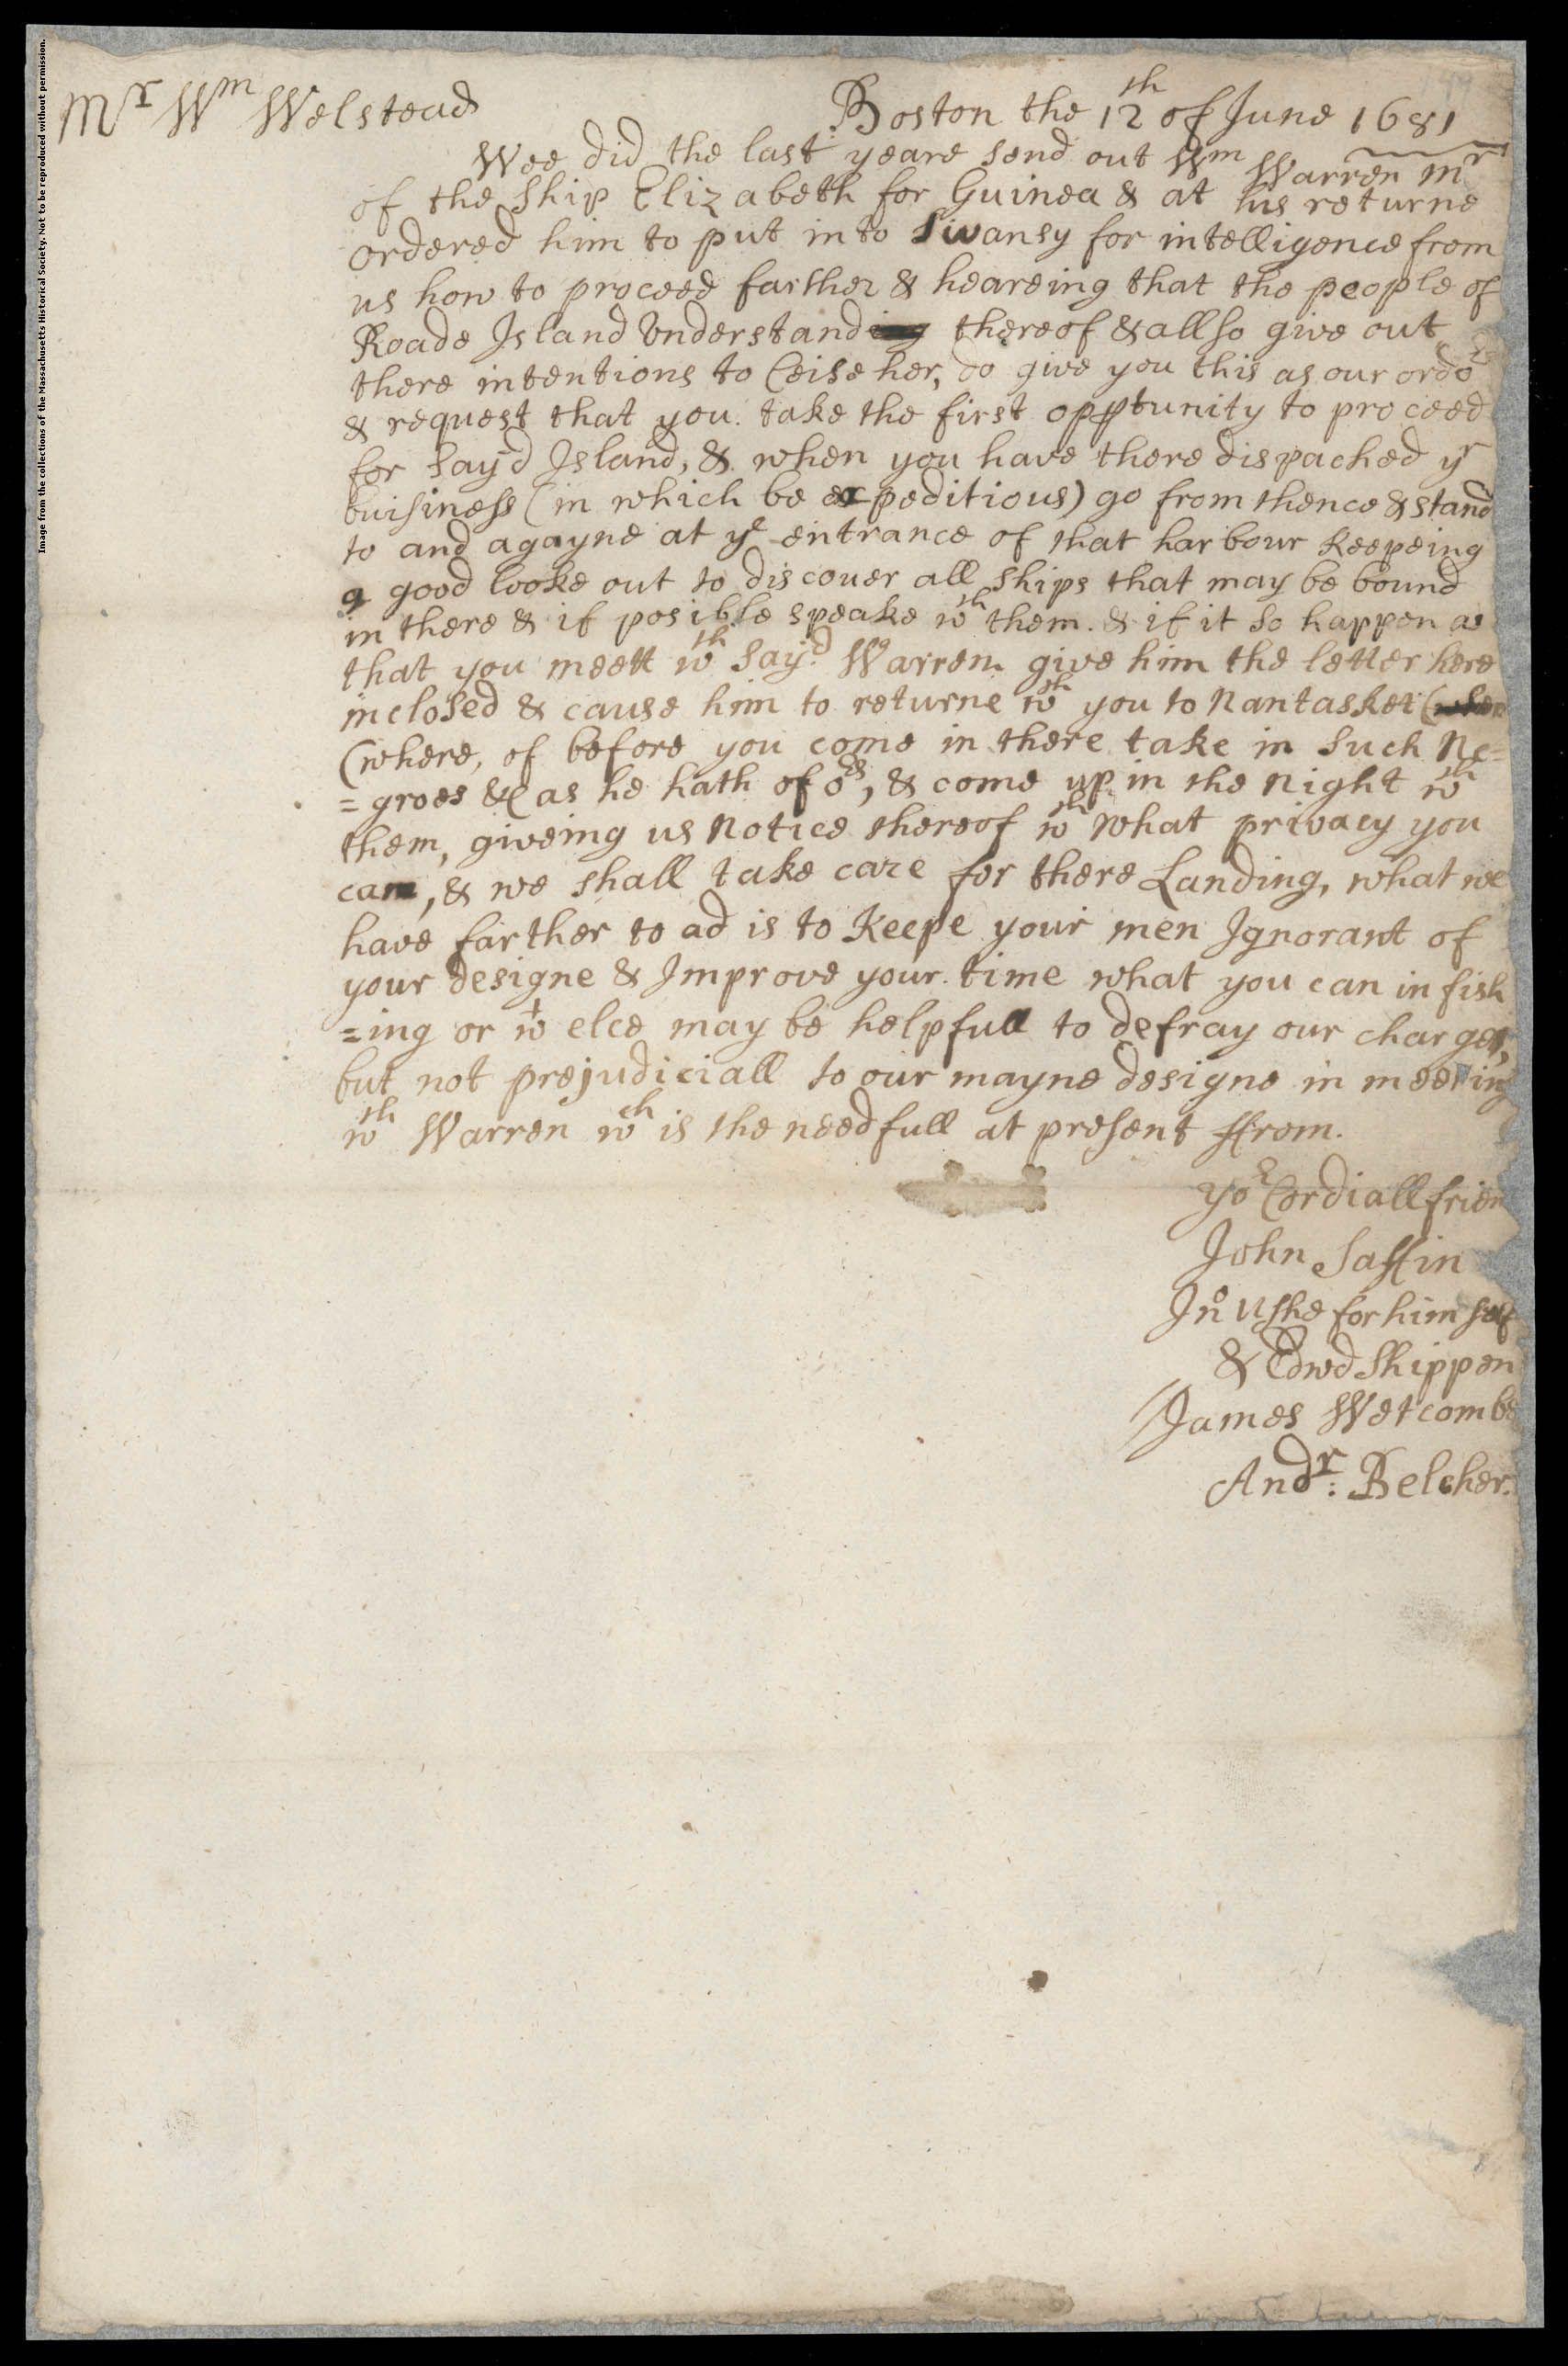 Image from the collections of the Massachusetts Historical Society. Not to be reproduced without permission.
Mr Wm Welstead
Boston the 12th of June 1681
Wee did the last yeare send out Wm Warren Mr
of the Ship Elizabeth for Guinea & at his returne
ordered him to put into Swansy for intelligence from
us how to proceed farther & heareing that the people of
Roade Island Understand thereof & allso give out
there intentions to Ceise her, do give you this as our ordor
& request that you take the first opptunity to proceed
for Say'd Island, & when you have there dispached yr
buisiness (in which be expeditious) go from thence & stand
to and agayne at ye entrance of that harbour Keepeing
a good looke out to discouer all Ships that may be bound
in there & if posible speake wth them. & if it so happen as
that you meett wth Say.d Warren give him the letter here
inclosed & cause him to returne wth you to Nantasket (when
(where, of before you come in there take in Such Ne=
=groes &c as he hath of ors, & come up in the Night wth
them, giveing us Notice thereof wth what privacy you
can, & we shall take care for there Landing, what we
have farther to ad is to Keepe your men Ignorant of
your designe & Improve your time what you can in fish
=ing or wt elce may be helpfull to defray our charges,
but not prejudiciall to our mayne designe in meeting
wth Warren wch is the needfull at present ffrom.
Yor Cordiall frien
John Saffin
Jno Ushe for him self
& Edwd Shippen
James Wetcombe
Andr: Belcher.